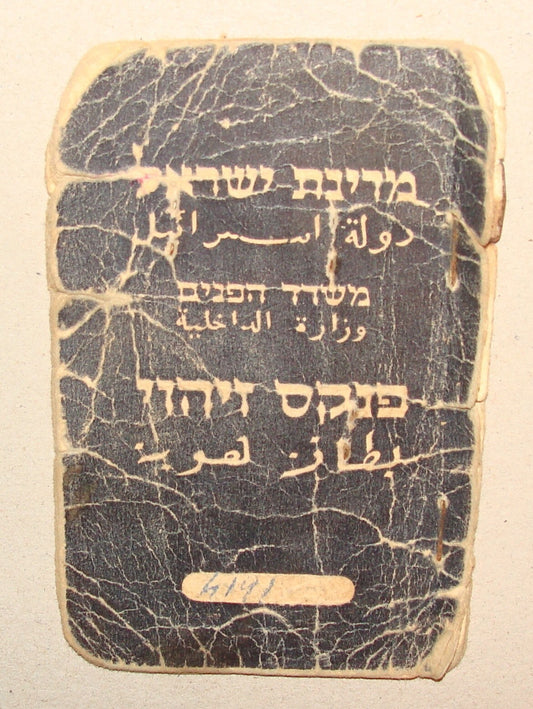 מדינת ישראל
دولة اسرائيل
משרד הפנים
وزارة الداخلية
פנקס זיהוי